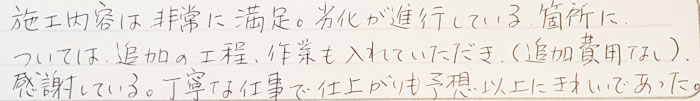 施工内容は非常に満足。劣化が進行している箇所に
ついては、追加の工程、作業も入れていただき、(追加費用なし)、
感謝している。丁寧な仕事で仕上がりも予想以上にきれいであった。